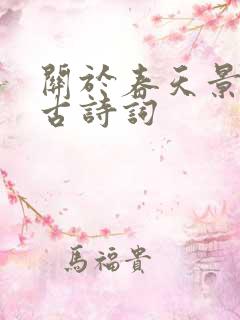 關於春天景
古詩詞
馬福貴